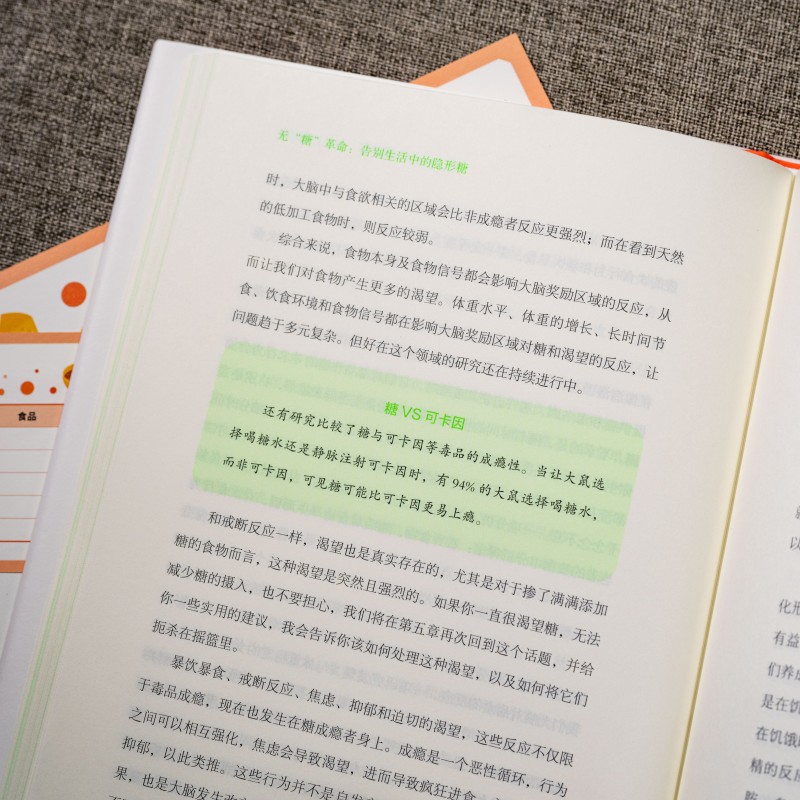 无“糖”革命：告别生活中的隐形糖
时，大脑中与食欲相关的区域会比非成瘾者反应更强烈；而在看到天然
的低加工食物时，则反应较弱。
综合来说，食物本身及食物信号都会影响大脑奖励区域的反应，从
而让我们对食物产生更多的渴望。体重水平、体重的增长、长时间节
食、饮食环境和食物信号都在影响大脑奖励区域对糖和渴望的反应，让
问题趋于多元复杂。但好在这个领域的研究还在持续进行中。
糖 VS 可卡因
还有研究比较了糖与可卡因等毒品的成瘾性。当让大鼠选
择喝糖水还是静脉注射可卡因时，有 94% 的大鼠选择喝糖水，
而非可卡因，可见糖可能比可卡因更易上瘾。
和戒断反应一样，渴望也是真实存在的，尤其是对于掺了满满添加
糖的食物而言，这种渴望是突然且强烈的。如果你一直很渴望糖，无法
减少糖的摄入，也不要担心，我们将在第五章再次回到这个话题，并给
你一些实用的建议，我会告诉你该如何处理这种渴望，以及如何将它们
扼杀在摇篮里。
暴饮暴食、戒断反应、焦虑、抑郁和迫切的渴望，这些反应不仅限
于毒品成瘾，现在也发生在糖成瘾者身上。成瘾是一个恶性循环，行为
之间可以相互强化，焦虑会导致渴望，进而导致疯狂进食，
抑郁，以此类推。这些行为并不是自发
果，也是大脑发生改
食品
以
化形
有益
们养成
是在饥
在饥饿
精的反应